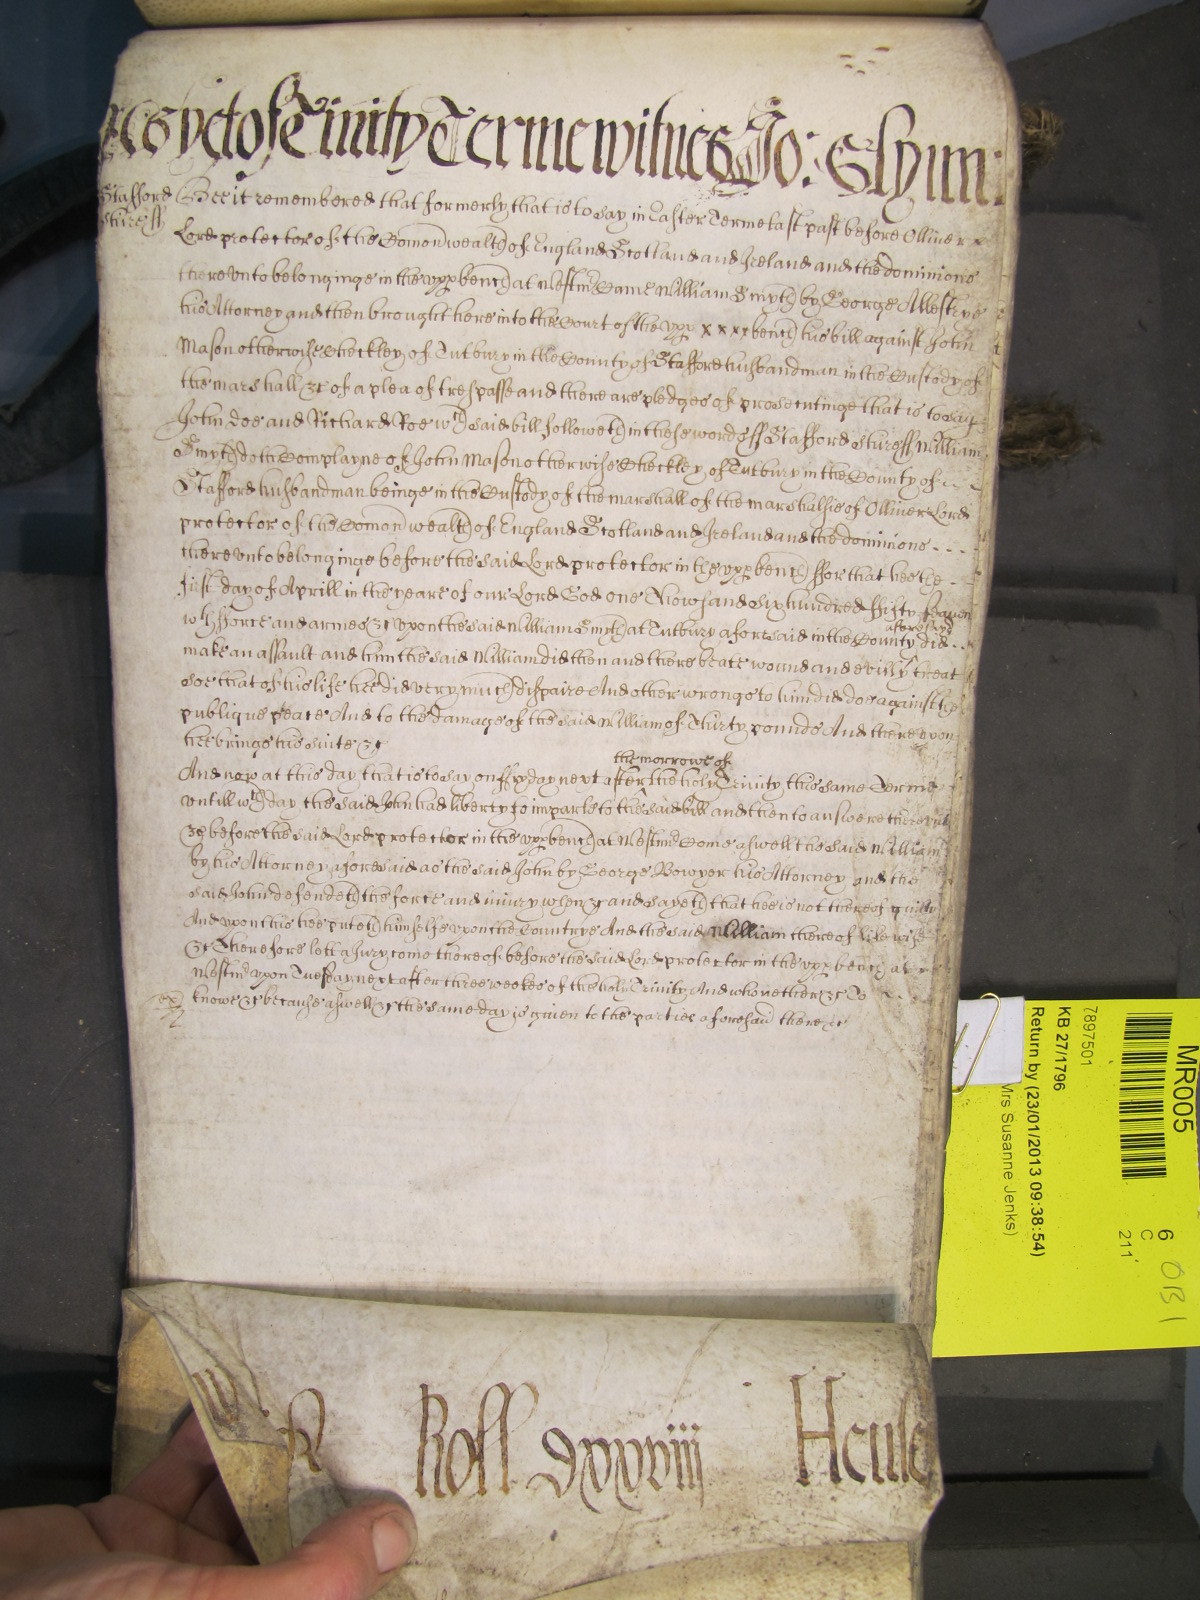 as yet of Trinity Terme witnes Jo: Glynn:
Stafford Bee it remembered that formerly that is to say in Easter Terme last past before Olliver
sturs ss Lord protector of the Comonwealth of England Scotland and Ireland and the dominions
thereunto belonginge in the upp bench at Westm Came William Smyth by George Allestrye
his Attorney and then brought here into the Court of the upp x x x x bench his bill against John
Mason otherwise Checkley of Tutbury in the County of Stafford husbandman in the Custody of
the marshall &c of a plea of trespasse and there are pledges of prosecutinge that is to say
John Doe and Richard Roe wch said bill followeth in these words ss Stafford sturs ss William
Smyth doth Complayne of John Mason otherwise Checkley of Tutbury in the County of
Stafford husbandman beinge in the Custody of the marshall of the marshalsie of Olliver Lord
protector of the Comonwealth of England Scotland and Ireland and the dominions
thereunto belonginge before the said Lord protector in the upp bench ffor that hee the
first day of Aprill in the yeare of our Lord God one Thowsand six hundred ffifty seaven
aforesayd
wth fforce and armes &c upon the said William Smyth at Tutbury aforesaid in the County did
make an assault and him the said William did then and there beate wound and evilly treat
soe that of his life hee did very much dispaire And other wrongs to him did doe against the
publique peace And to the damage of the said William of Thirty pounds And thereupon
hee brings his suite &c
the morrowe of
And now at this day that is to say on ffryday next after the holy Trinity this same Terme
untill wch day the said John had liberty to imparle to the said bill and then to answere thereunto
&c before the said Lord protector in the upp bench at Westm Come aswell the said William
by his Attorney aforesaid as the said John by George Bowyer his Attorney and the
said John defendeth the force and iniury when &c and sayeth that hee is not thereof guilty
And upon this hee puteth himselfe upon the Countrye And the said William thereof likewise
&c Therefore lett a Jury come thereof before the said Lord protector in the upp bench at
Westm upon Tuesday next after three weekes of the holy Trinity And who neither &c To
knowe &c because aswell &c the same day is given to the parties aforesaid there &c
R Roll Henle
MR005
7897501
KB 27/1796
Return by (23/01/2013 09:38:54)
Mrs Susanne Jenks)
6
C
211
OB 1